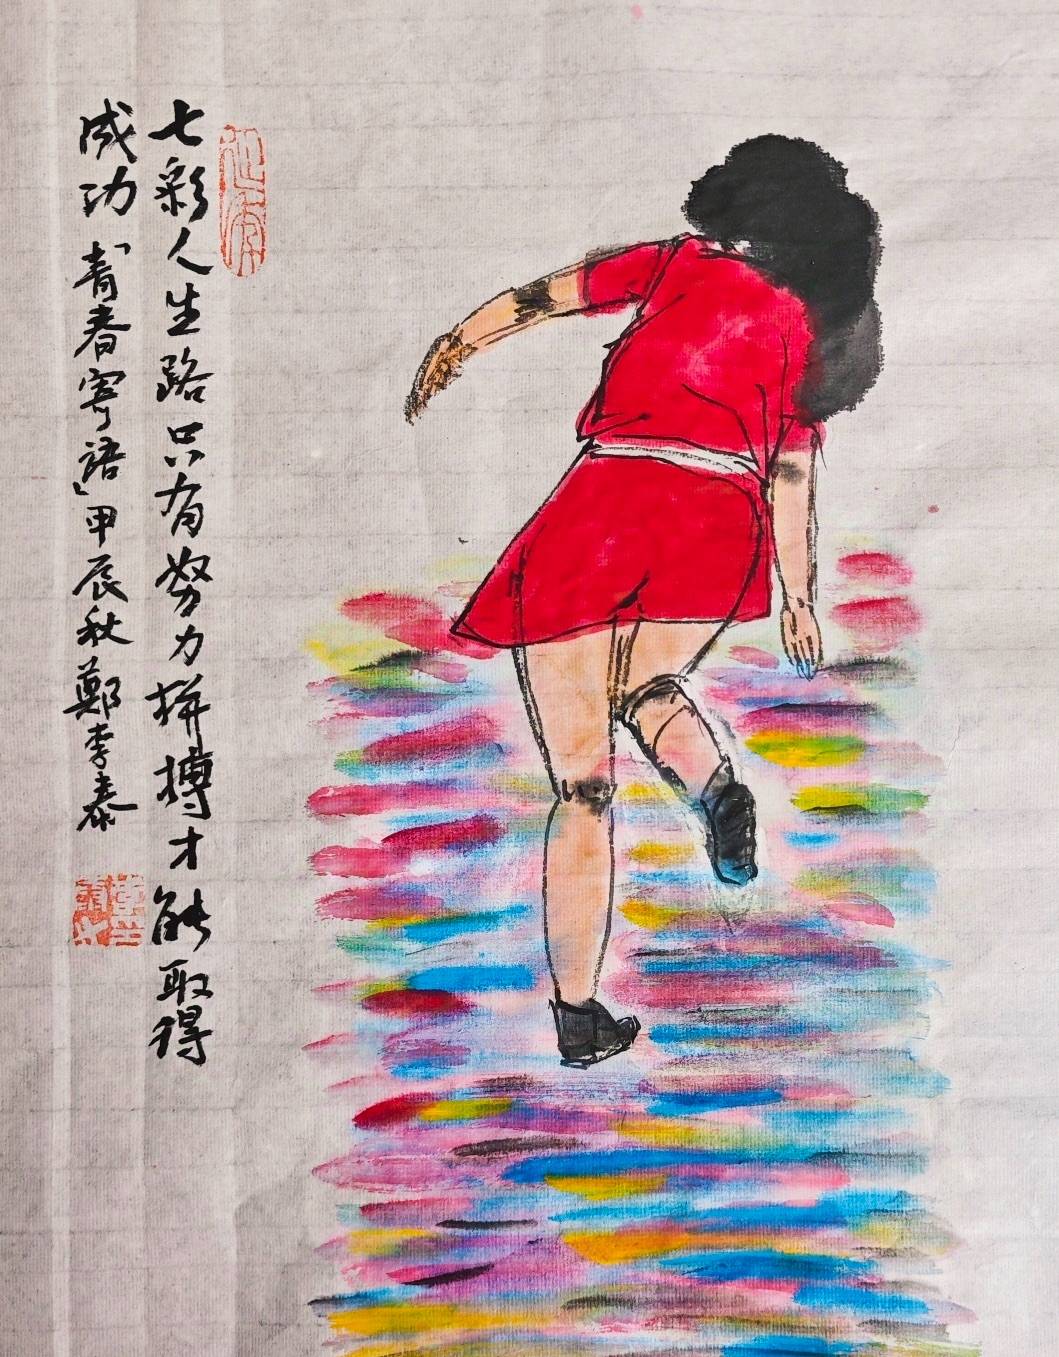 七彩人生路只有努力拼搏才能取得
成功「青春寄语」甲辰秋鄭李泰